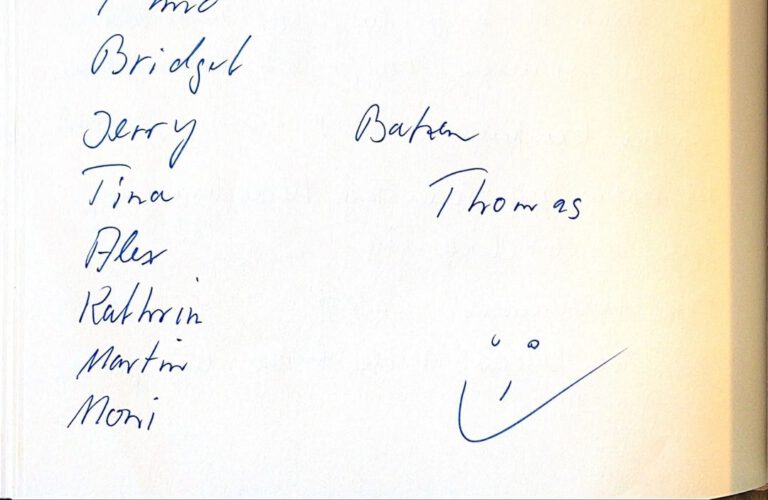 Bridget
Jerry
Tina
Alex
Kathrin
Martin
Moni
Batzen
Thomas